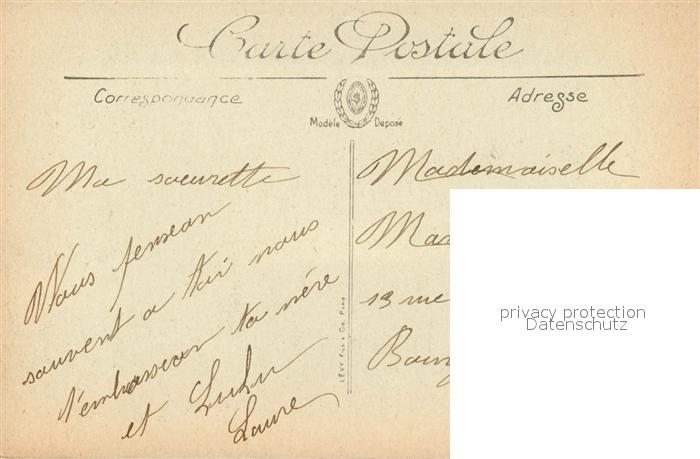 Carte Postale
Correspondance
Adresse
Modèle Déposé
Ma soeurette
Nous pensons
souvent a toi nous
t'embrassons ta mère
et Lulu
Laure
LEVY FILS & CIE PARIS
Mademoiselle
13 rue
privacy protection
Datenschutz